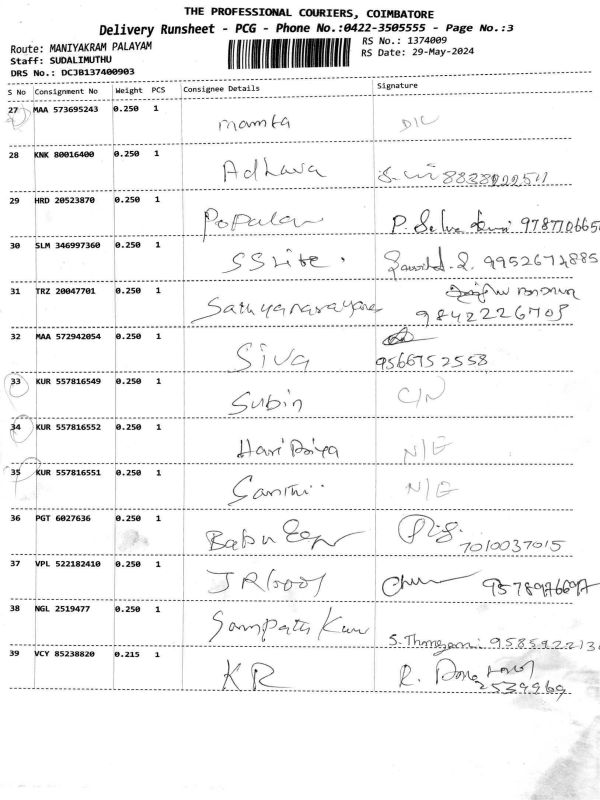 THE PROFESSIONAL COURIERS, COIMBATORE
Delivery Runsheet - PCG - Phone No.:0422-3505555 - Page No.:3
Route: MANIYAKRAM PALAYAM
RS No.: 1374009
Staff: SUDALIMUTHU
RS Date: 29-May-2024
DRS No.: DCJB137400903
S No Consignment No Weight PCS Consignee Details Signature
27 MAA 573695243 0.250 1 mamta
28 KNK 80016400 0.250 1 Adhava
29 HRD 20523870 0.250 1 Popular
30 SLM 346997360 0.250 1 SSLite
31 TRZ 20047701 0.250 1 Sathyanarayana
9842226703
32 MAA 572942054 0.250 1 Siva
9566752558
33 KUR 557816549 0.250 1 Subin C/N
34 KUR 557816552 0.250 1 Hari Priya N/E
35 KUR 557816551 0.250 1 Santhi N/E
36 PGT 6027636 0.250 1 Babu
7010037015
37 VPL 522182410 0.250 1
38 NGL 2519477 0.250 1 Sampath
39 VCY 85238820 0.215 1 KR R.
2539969